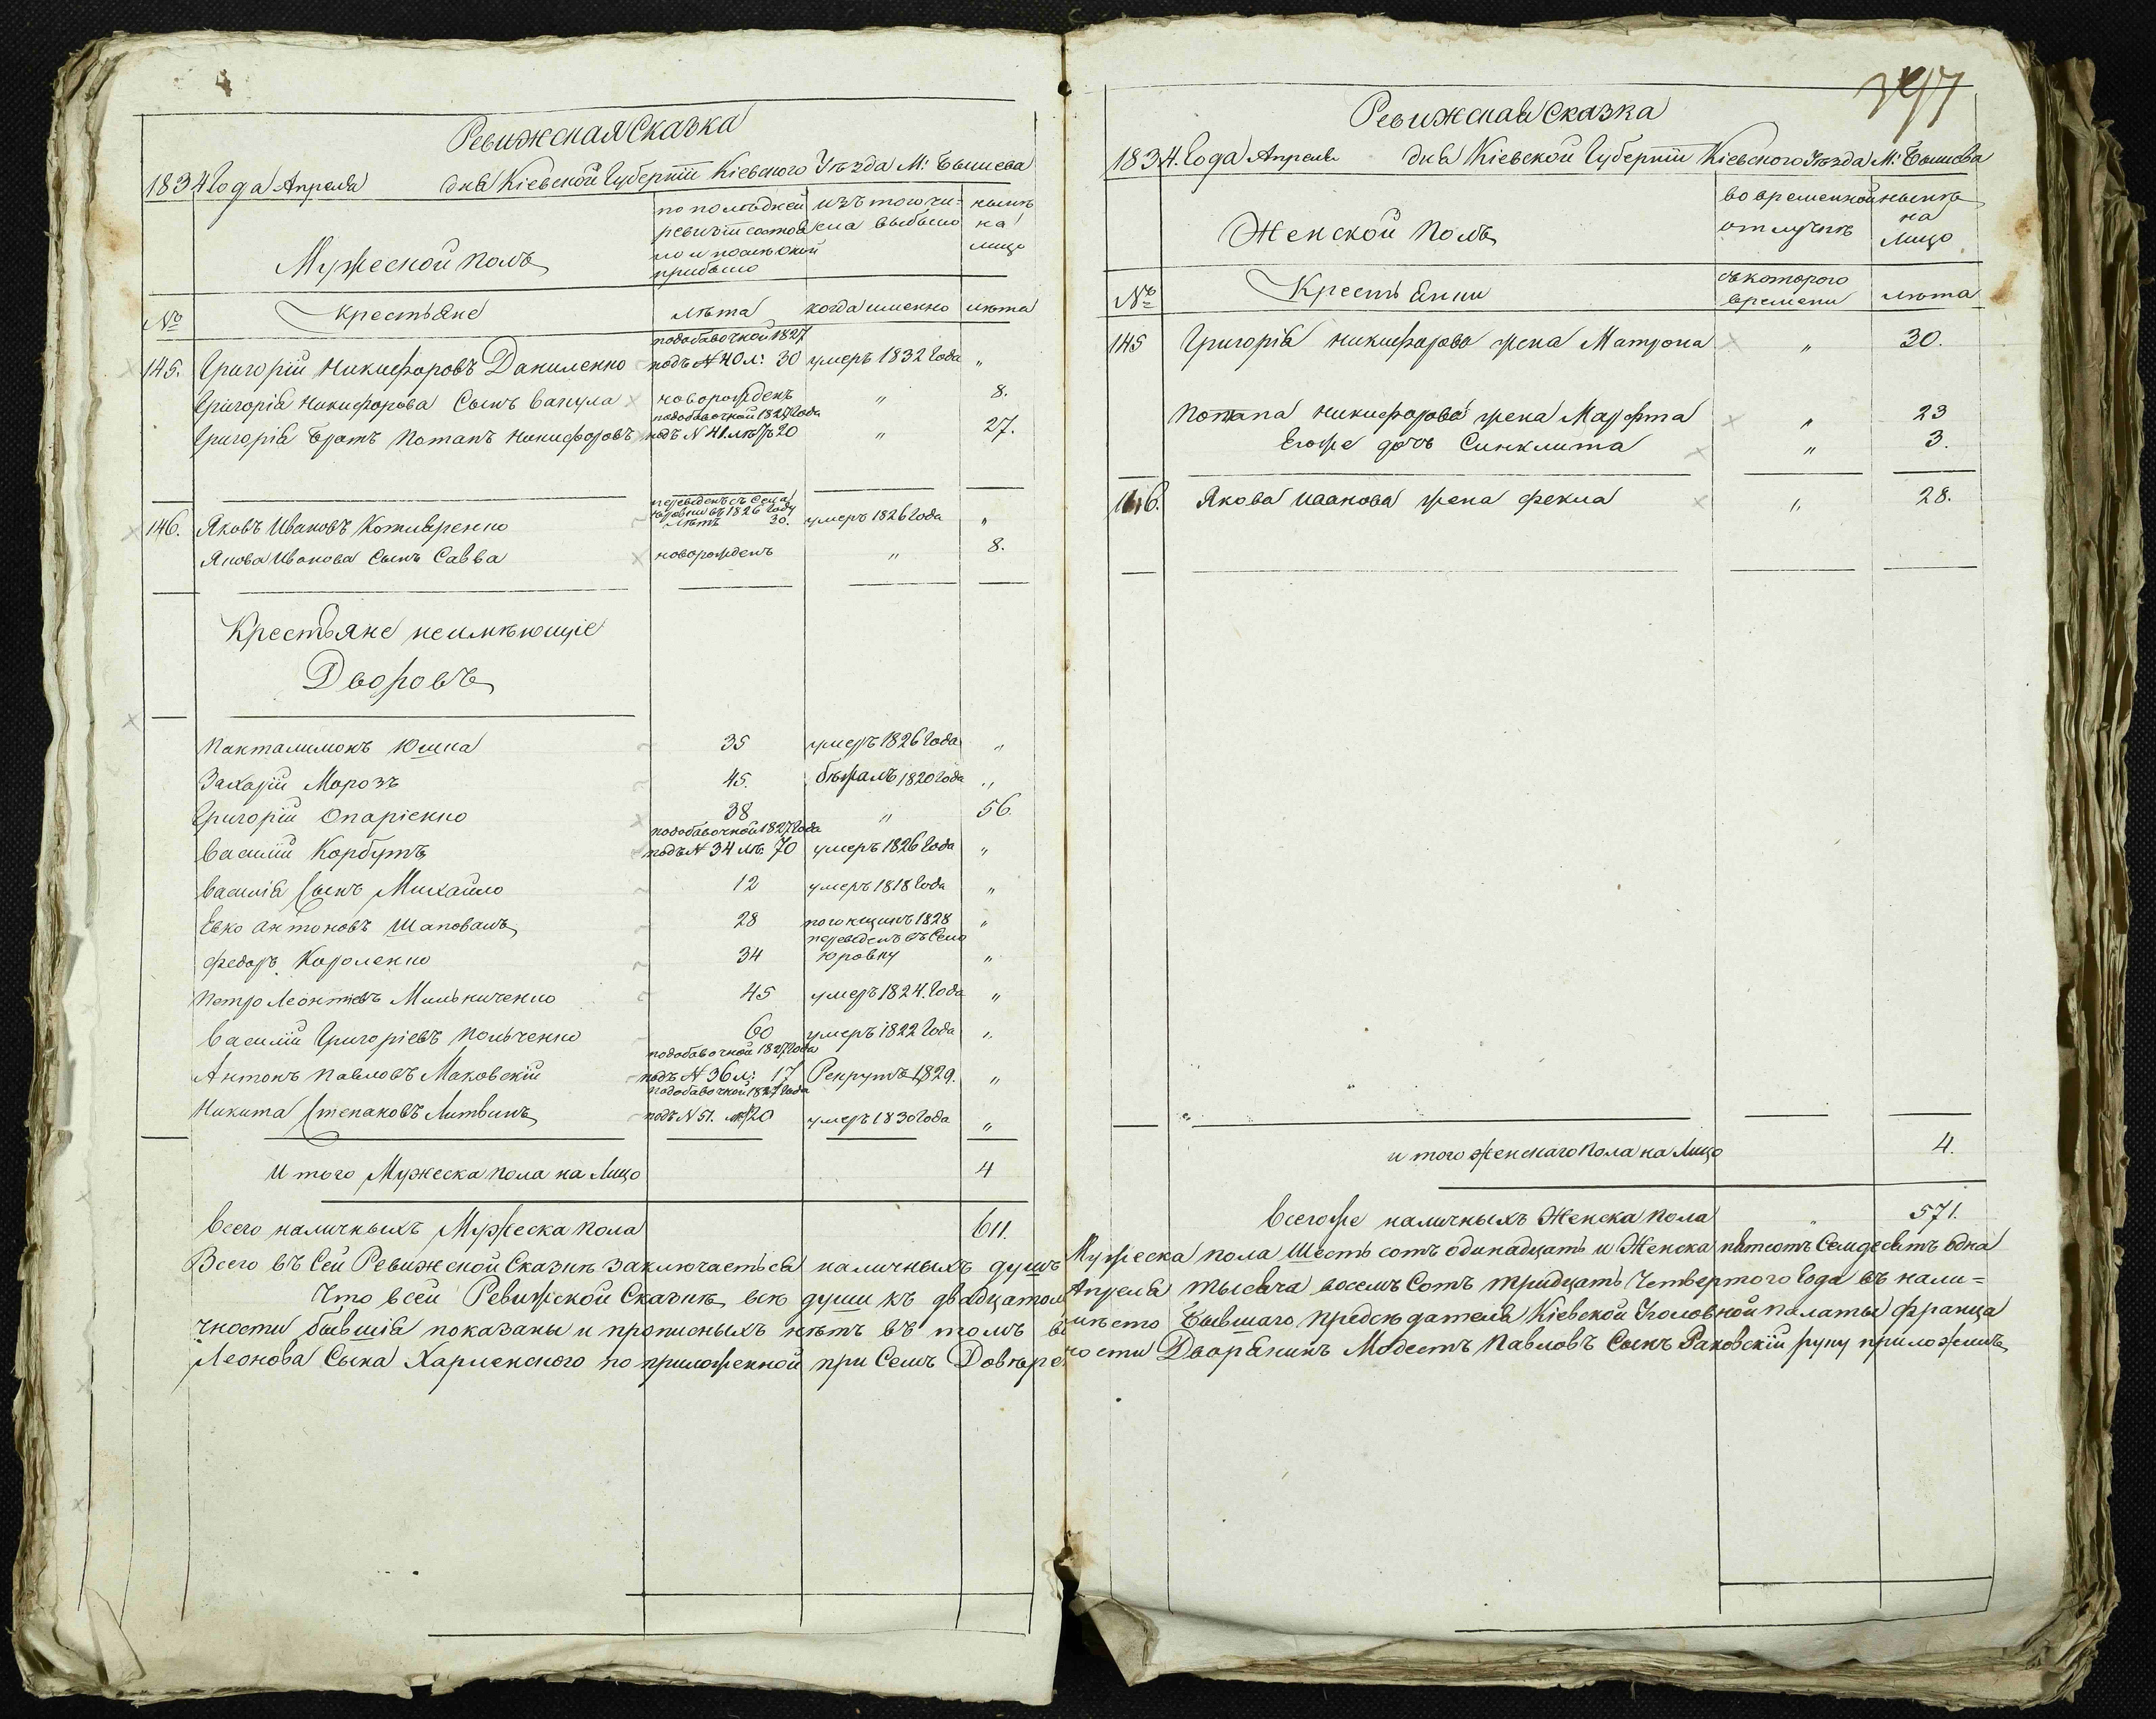 Ревижская Сказка
1834 года Апреля дня Кіевской Губерніи Кіевского Уезда М: Бышева
Мужеской полъ
по последней ревизіи состояло и после оной прибыло
изъ того числа выбыло
ныне на лицо
№
Крестьяне
лета
когда именно
лета
145. Григорій Никифоровъ Даниленко
подобавочной 1827
подъ № 40 л: 30 умеръ 1832 года "
Григорія Никифорова Сынъ Вакула новорожденъ " 8.
подобавочной 1827 года
Григорія Братъ Потапъ Никифоровъ подъ № 41. летъ 20 " 27.
переведенъ съ Села
Юровки въ 1826 году
146. Яковъ Ивановъ Котляренко летъ 30. умеръ 1826 года "
Якова Иванова Сынъ Савва новорожденъ " 8.
Крестьяне неимеющіе
Дворовъ
Пакталимонъ Юшка 35 умеръ 1826 года "
Захарій Морозъ 45. бежалъ 1820 года "
Григорій Опаріенко 38 " 56.
подобавочной 1827 года
Василій Корбутъ подъ № 34 ле: 70 умеръ 1826 года "
Василія Сынъ Михайло 12 умеръ 1818 года "
Евко Антоновъ Шаповалъ 28 1828 "
переведенъ въ Село
Федоръ Короленко 34 Юровку "
Петро Леонтіевъ Мильниченко 45 умеръ 1824. года "
Василій Григоріевъ Польченко 60 умеръ 1822 года "
подобавочной 1827 года
Антонъ Павловъ Маковскій подъ № 36 л: 17 Рекрутъ 1829. "
подобавочной 1827 года
Никита Степановъ Литвинъ подъ № 51. ле: 20 умеръ 1830 года "
Итого Мужеска пола на Лицо 4
Всего наличныхъ Мужеска пола 611.
397
Ревижская Сказка
1834. года Апреля дня Кіевской Губерніи Кіевского Уезда М: Бышева
Женской полъ
во временной отлучке
ныне на лицо
№
Крестьянки
съ которого времени
лета
145 Григорія Никифорова жена Матрона " 30.
Потапа Никифорова жена Марфта " 23
Егоже дочь Синклита " 3.
146. Якова Иванова жена Фекла " 28.
и того женскаго пола на Лицо 4.
Всегоже наличныхъ Женска пола 571.
Всего въ Сей Ревижской Сказке заключаетьса наличныхъ душъ Мужеска пола Шесть сотъ одинадцать и Женска пятсотъ Семдесятъ одна
Что всей Ревижской Сказке все души къ двадцатом Апреля тысяча восемъ Сотъ тридцать Четвертого года въ нали=
чности бывшія показаны и прописныхъ нетъ въ томъ вместо Бывшаго председателя Кіевской Уголовной палаты Франца
Леонова Сына Харленского по приложенной при Семъ Доверености Дворянинъ Модестъ Павловъ Сынъ Раковскій руку приложилъ